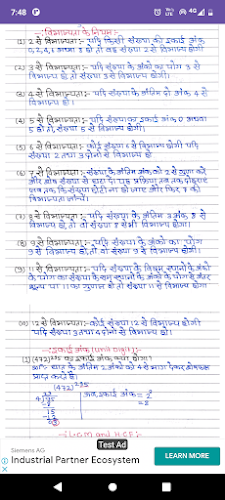 7:48
49
-: विभाज्यता के नियम :-
(1) 2 से विभाज्यता :- यदि किसी संख्या का इकाई अंक
0, 2, 4, 6 अथवा 8 हो तो वह संख्या 2 से विभाज्य होगी।
(2) 3 से विभाज्यता :- यदि संख्या के अंको का योग 3 से
विभाज्य हो तो संख्या 3 से विभाज्य होगी।
(3) 4 से विभाज्यता :- यदि संख्या के अंतिम दो अंक 4 से
विभाज्य हो।
(4) 5 से विभाज्यता :- यदि संख्या का इकाई अंक 0 अथवा
5 हो तो, संख्या 5 से विभाज्य होगी।
(5) 6 से विभाज्यता :- कोई संख्या 6 से विभाज्य होगी यदि
संख्या 2 तथा 3 दोनो से विभाज्य हो
(6) 7 से विभाज्यता :- संख्या के अंतिम अंक को 2 से गुणा करे
और शेष संख्या से घटा दे यह प्रक्रिया तब तक दोहराए
जब तक कि संख्या छोटी ना हो जाए और फिर 7 की
विभाज्यता जाँचें।
(7) 8 से विभाज्यता :- यदि संख्या के अंतिम 3 अंक, 8 से
विभाज्य हो, तो वो संख्या 8 से भी विभाज्य होगी।
(8) 9 से विभाज्यता :- यदि संख्या के अंको का योग
9 से विभाज्य हो, तो वो संख्या 9 से विभाज्य होगी।
(9) 11 से विभाज्यता :- यदि संख्या के विषम स्थानो के अंको
के योग का संख्या के सम स्थानो के अंको के योग से अंतर
शून्य या 11 का गुणज हो तो संख्या 11 से विभाज्य होगी
(10) 12 से विभाज्यता - कोई संख्या 12 से विभाज्य होगी
यदि संख्या 3 तथा 4 दोनो से विभाज्य हो।
-: इकाई अंक (unit digit) :-
(1) (472) का इकाई अंक क्या होगा।
घात के अंतिम 2 अंको को 4 से भाग देकर शेषफल
प्राप्त करते है।
(472)
अतः इकाई अंक =
-: LCM and HCF :-
Test Ad
Siemens AG
Industrial Partner Ecosystem
LEARN MORE